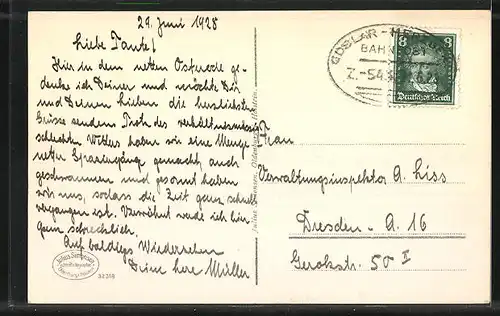 29. Juni 1928
Liebe Tante!
Hier in dem netten Osterode ge-
denke ich Deiner und möchte Dir
und Deinen Lieben die herzlichsten
Grüsse senden. Trotz des verhältnismässig
schlechten Wetters haben wir eine Menge
netter Spaziergänge gemacht, auch
geschwommen und gesonnt haben
wir uns, sodass die Zeit ganz schnell
vergangen ist. Verwöhnt werde ich hier
ganz schrecklich.
Auf baldiges Wiedersehen
Deine Müller
GOSLAR
BAHNPOST
Z.
8
Deutsches Reich
Frau
Verwaltungsinspektor A. Liss
Dresden - A. 16
Gerokstr. 50 I